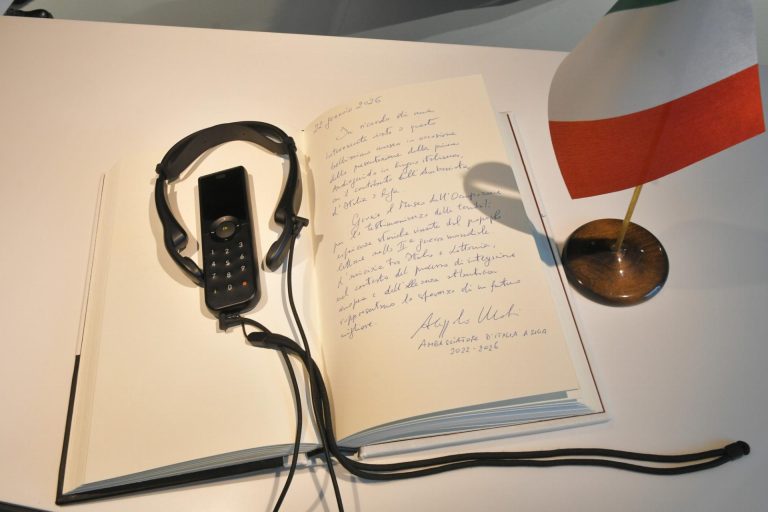 22 gennaio 2026
In ricordo di una
interessante visita a questo
bellissimo museo in occasione
della presentazione della prima
Audioguida in lingua italiana,
con il contributo dell'Ambasciata
d'Italia a Riga.
Grazie al Museo dell'Occupazione
per le testimonianze delle terribili
esperienze storiche vissute dal popolo
lettone nella II a guerra mondiale.
L'amicizia tra Italia e Lettonia,
nel contesto del processo di integrazione
europea e dell'alleanza atlantica
rappresentano la speranza di un futuro
migliore.
AMBASCIATORE D'ITALIA A RIGA
2022-2026
1 2 3
4 5 6
7 8 9
0